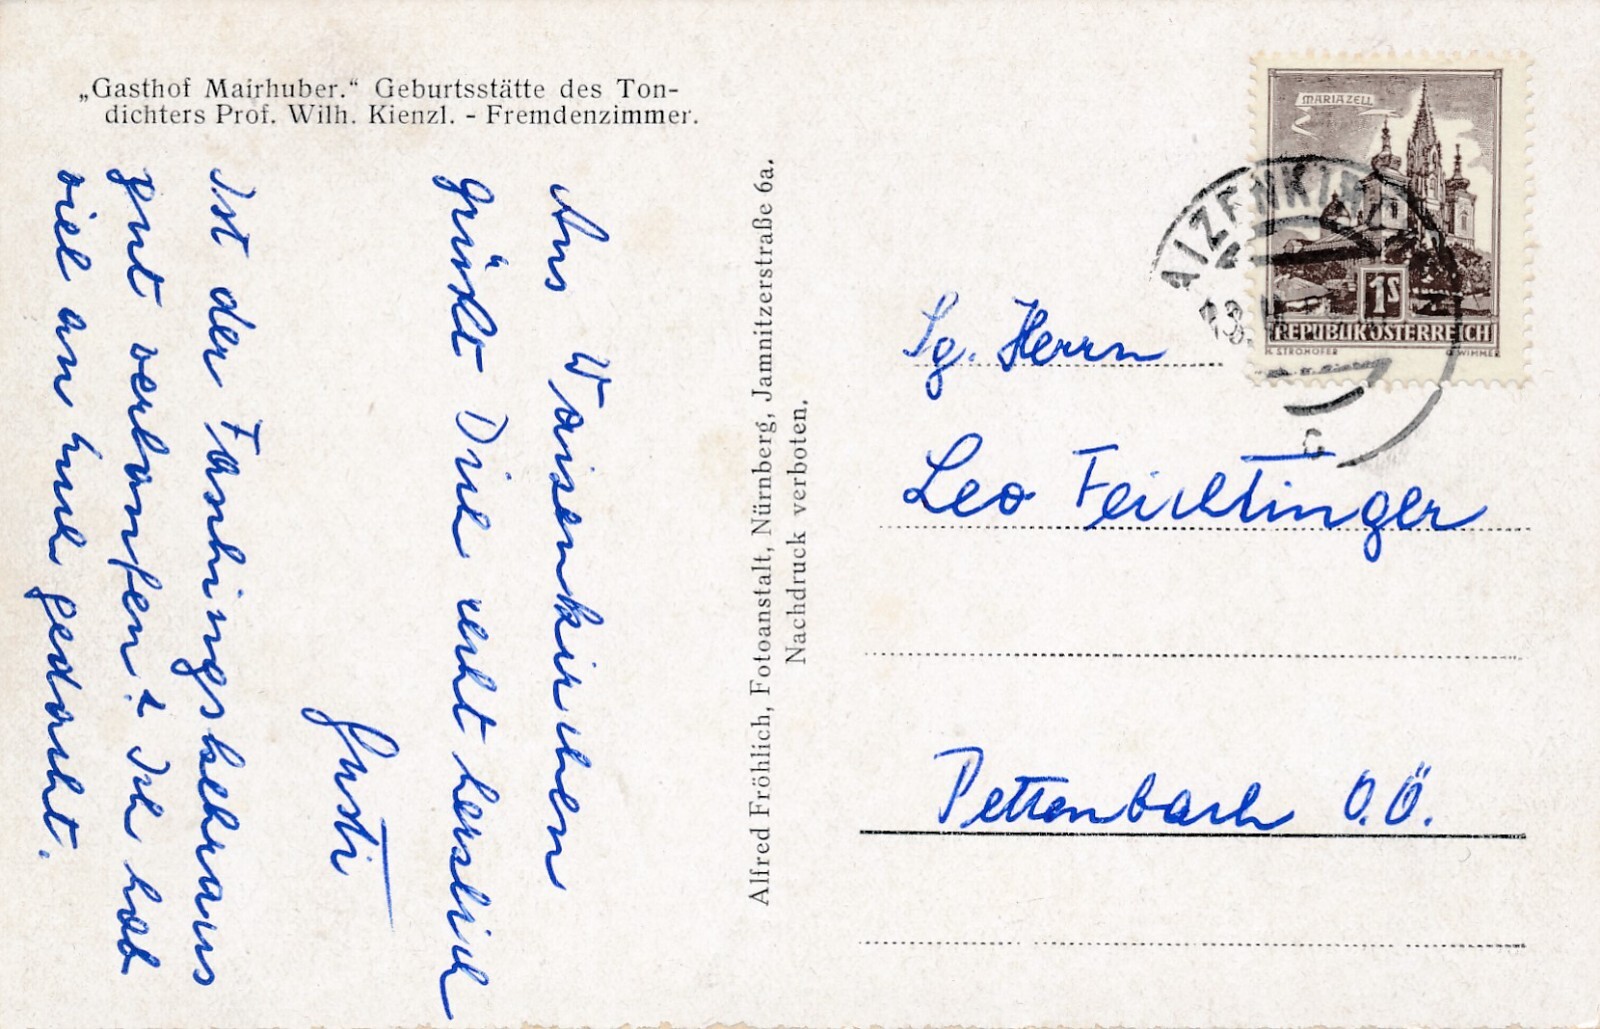 „Gasthof Mairhuber.“ Geburtsstätte des Ton-
dichters Prof. Wilh. Kienzl. - Fremdenzimmer.
Aus Waizenkirchen
grüßt Dich recht herzlich
Gusti
Ist der Faschingskehraus
gut verlaufen? Ich hab
viel an Euch gedacht.
Alfred Fröhlich, Fotoanstalt, Nürnberg, Jamnitzerstraße 6a.
Nachdruck verboten.
MARIAZELL
1S
REPUBLIK ÖSTERREICH
H. STROHOFER
G. WIMMER
AIZENKIR
13.
c
Sg. Herrn
Leo Feichtinger
Pettenbach O.Ö.